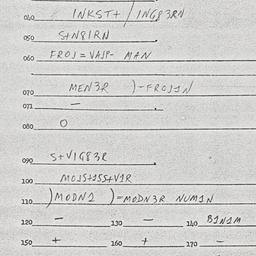 040 INKST+ / ING83RN
050 S+N8IRN
060 FROJ=VAJP- MAN
070 MEN3R )-FROJ1N
071 —
080 O
090 S+VIG83R
100 MOJS+1SS+V1R
110 )MODN2 )-MODN3R NUM1N
120 — 130 — 140 B1N1M
150 + 160 + 170 —